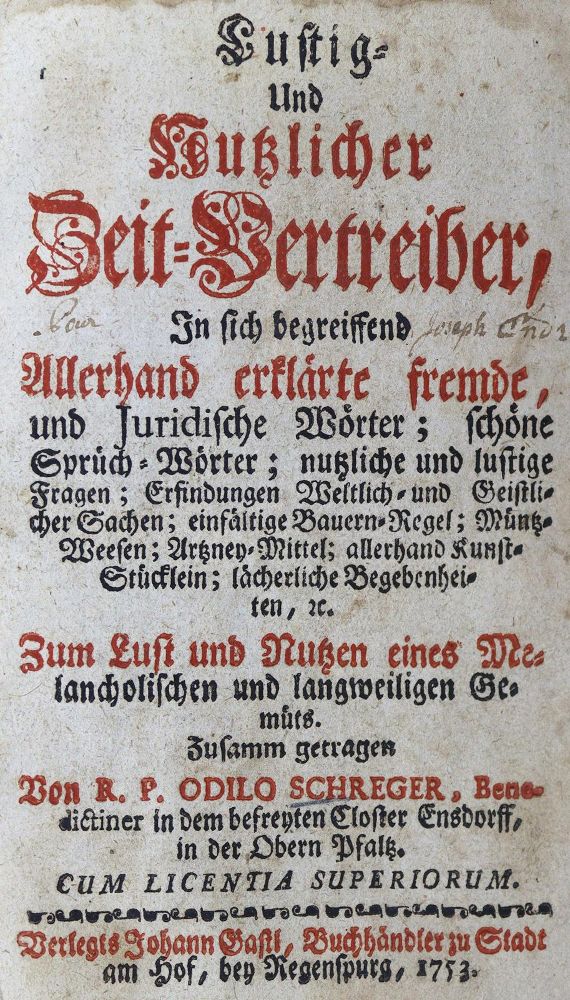 Lustig-
Und
Nutzlicher
Zeit-Vertreiber,
Pour
In sich begreiffend
Joseph
Allerhand erklärte fremde,
und Juridische Wörter; schöne
Sprüch-Wörter; nutzliche und lustige
Fragen; Erfindungen Weltlich- und Geistli-
cher Sachen; einfältige Bauern-Regel; Müntz-
Weesen; Artzney-Mittel; allerhand Kunst-
Stücklein; lächerliche Begebenhei-
ten, ꝛc.
Zum Lust und Nutzen eines Me-
lancholischen und langweiligen Ge-
müts.
Zusamm getragen
Von R. P. ODILO SCHREGER, Bene-
dictiner in dem befreyten Closter Ensdorff,
in der Obern Pfaltz.
CUM LICENTIA SUPERIORUM.
Verlegts Johann Gastl, Buchhändler zu Stadt
am Hof, bey Regenspurg, 1753.